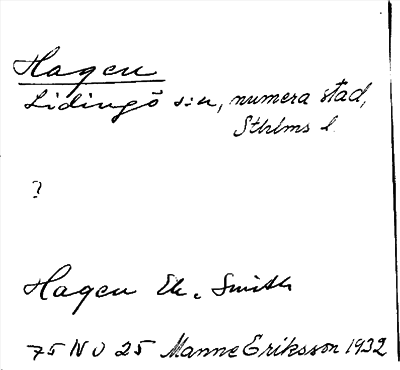 Hagen
Lidingö s:n, numera stad,
Sthlms l.
?
Hagen Ek. Smith
75 NO 25 Manne Eriksson 1932